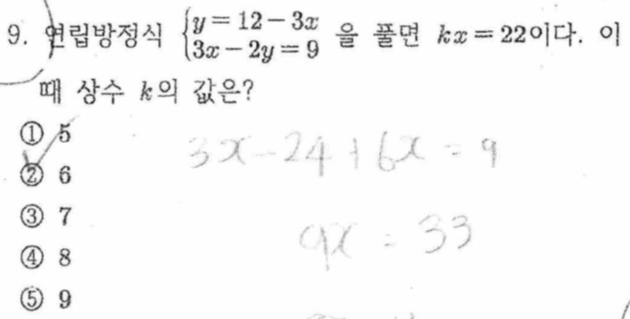 9. 연립방정식 { y = 12 - 3x
3x - 2y = 9 을 풀면 kx = 22이다. 이
때 상수 k의 값은?
① 5
3x - 24 + 6x = 9
② 6
③ 7
9x = 33
④ 8
⑤ 9